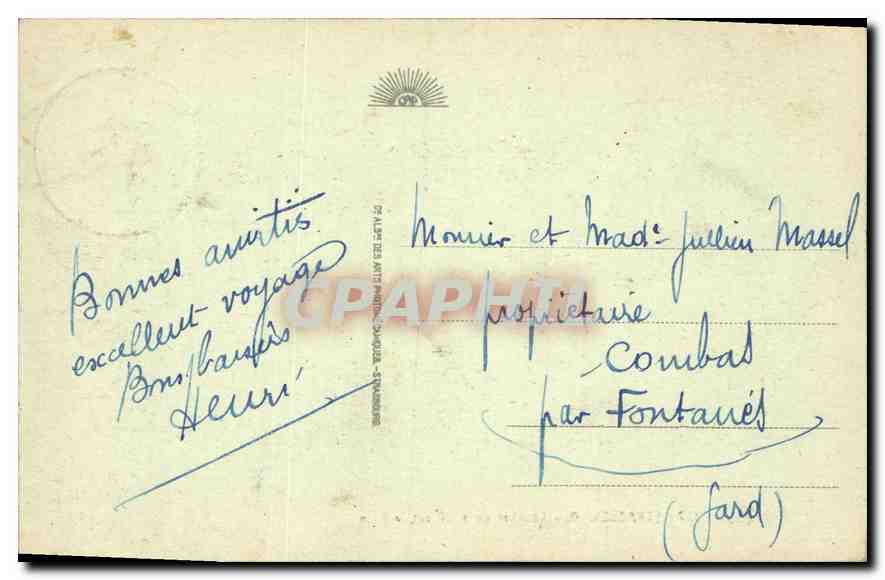 Bonnes amitiés
excellent voyage
Bons baisers
Henri
CAP
Cie ALSne DES ARTS PHOTOMÉCANIQUES - STRASBOURG
CPAPHIL
Monsier et Made Jullien Massel
propriétaire
Combas
par Fontanés
(Gard)